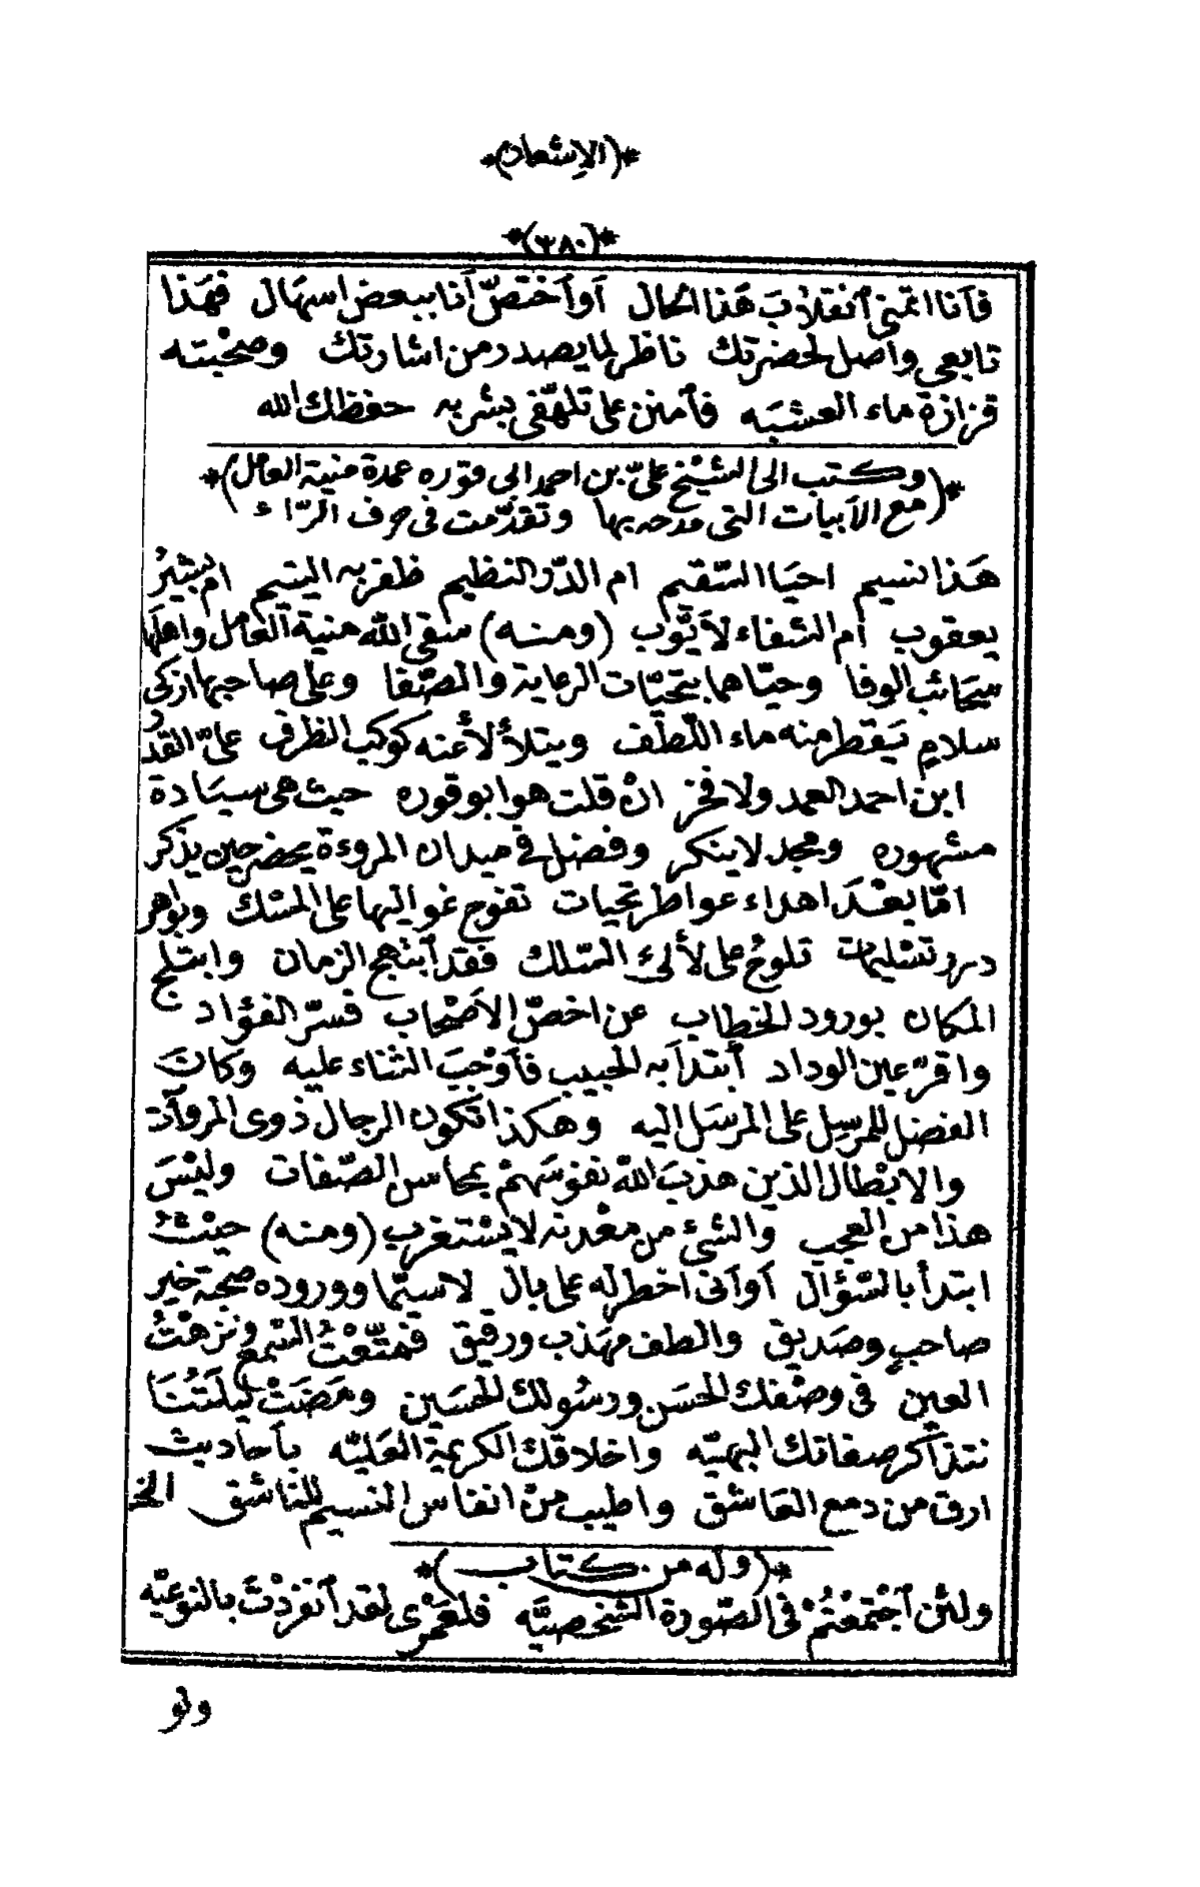 *(الإسعاد)*
*(٣٨٠)*
فأنا اتمنى أنقلاب هَذا الحال أو أختصّ أنا ببعض اسهال فهَذا
تابعى واصل لحضرتك ناظر لما يصدر من اشارتك وصحبته
قزازة ماء العشبَه فأمنن على تلهّفى بشربه حفظك الله
*(وكتب الى الشيخ علىّ بن احمد ابى قوّره عمدة منية العامل)*
(مع الأبيات التى مدحه بها وتقدّمت فى حرف الرّاء)
هَذا نسيم احيَا السّقيم ام الدّرّ النظيم ظفر به اليتيم ام بشيرُ
يعقوب أم الشفاء لأيّوب (ومنه) سقى اللّه منية العامل واهلَها
سحائب الوفا وحيّاهما بتحيّات الرعاية والصّفا وعلى صاحبها ازكى
سلامٍ يَقطر منه ماء اللّطف ويتلألأ عنه كوكب الظرف علىّ القدْر
ابن احمد العمد ولا فخر انْ قلت هو ابو قوره حيث هى سيَادة
مشهوره ومجد لا ينكر وفضل فى ميدان المروءة يحضر حين يذكر
امّا بعْدَ اهداء عواطر تحيات تفوح غواليها على المسْك وبواهر
درر تسْليمات تلوحُ على لألىء السّلك فقد أبتهج الزمان وابتلج
المكان بورود الخطاب عن اخصّ الاَصْحاب فسّر الفؤاد
واقرّ عين الوداد أبتدأ به الحبيب فأوْجبَ الثناء عليه وكانَ
الفضل للمرسِل على المرسَل اليه وهكذا تكون الرجال ذوى المروآت
والابْطال الذين هذبَ اللّه نفوسَهمْ بمحاسن الصّفات وليْسَ
هذا من العجب والشئ من معْدنه لا يسْتغرب (ومنه) حيْثُ
ابتدأ بالسّؤال أو أنى اخطر له على بال لا سيّما ووروده صحبة خير
صاحبٍ وصَديق والطف مهَذب ورقيق فمتّعْتُ السّمع ونزهْتُ
العين فى وصْفك الحسَن ورسُولك الحُسَين ومَضَتْ ليلَتُنَا
نتذاكر صفاتك البهيّه واخلاقك الكريمة العَليّه بأحاديث
ارق من دمع العَاشق واطيب منْ انفاس النسيم للناشق الخ
*(وله من كتاب)*
ولئن أجْتمعْتُمْ فى الصّورة الشخصيَّه فلعَمْرى لقد أنفردْتَ بالنوعيّه
ولو